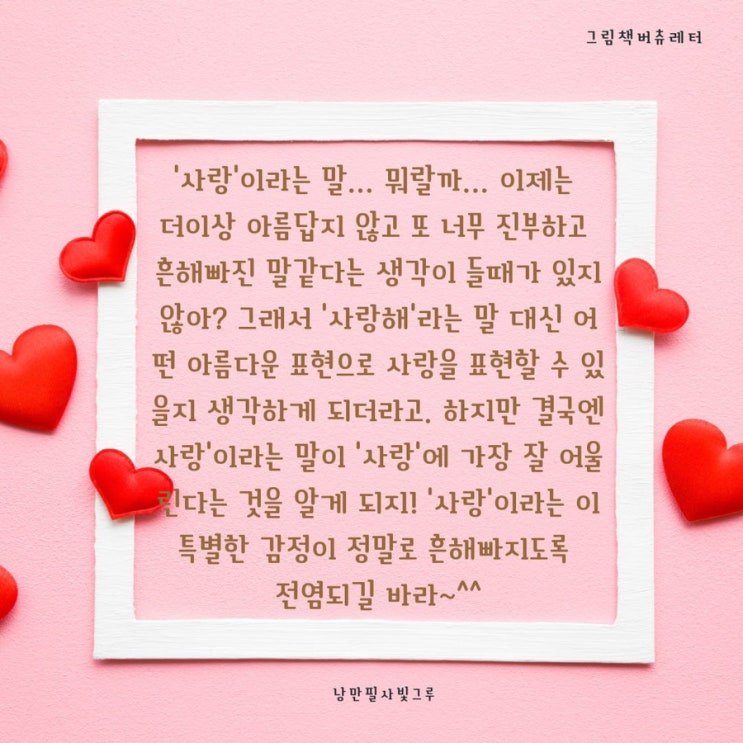 그림책버츄레터
'사랑'이라는 말... 뭐랄까... 이제는
더이상 아름답지 않고 또 너무 진부하고
흔해빠진 말같다는 생각이 들때가 있지
않아? 그래서 '사랑해'라는 말 대신 어
떤 아름다운 표현으로 사랑을 표현할 수 있
을지 생각하게 되더라고. 하지만 결국엔
사랑'이라는 말이 '사랑'에 가장 잘 어울
린다는 것을 알게 되지! '사랑'이라는 이
특별한 감정이 정말로 흔해빠지도록
전염되길 바라~^^
낭만필사빛그루